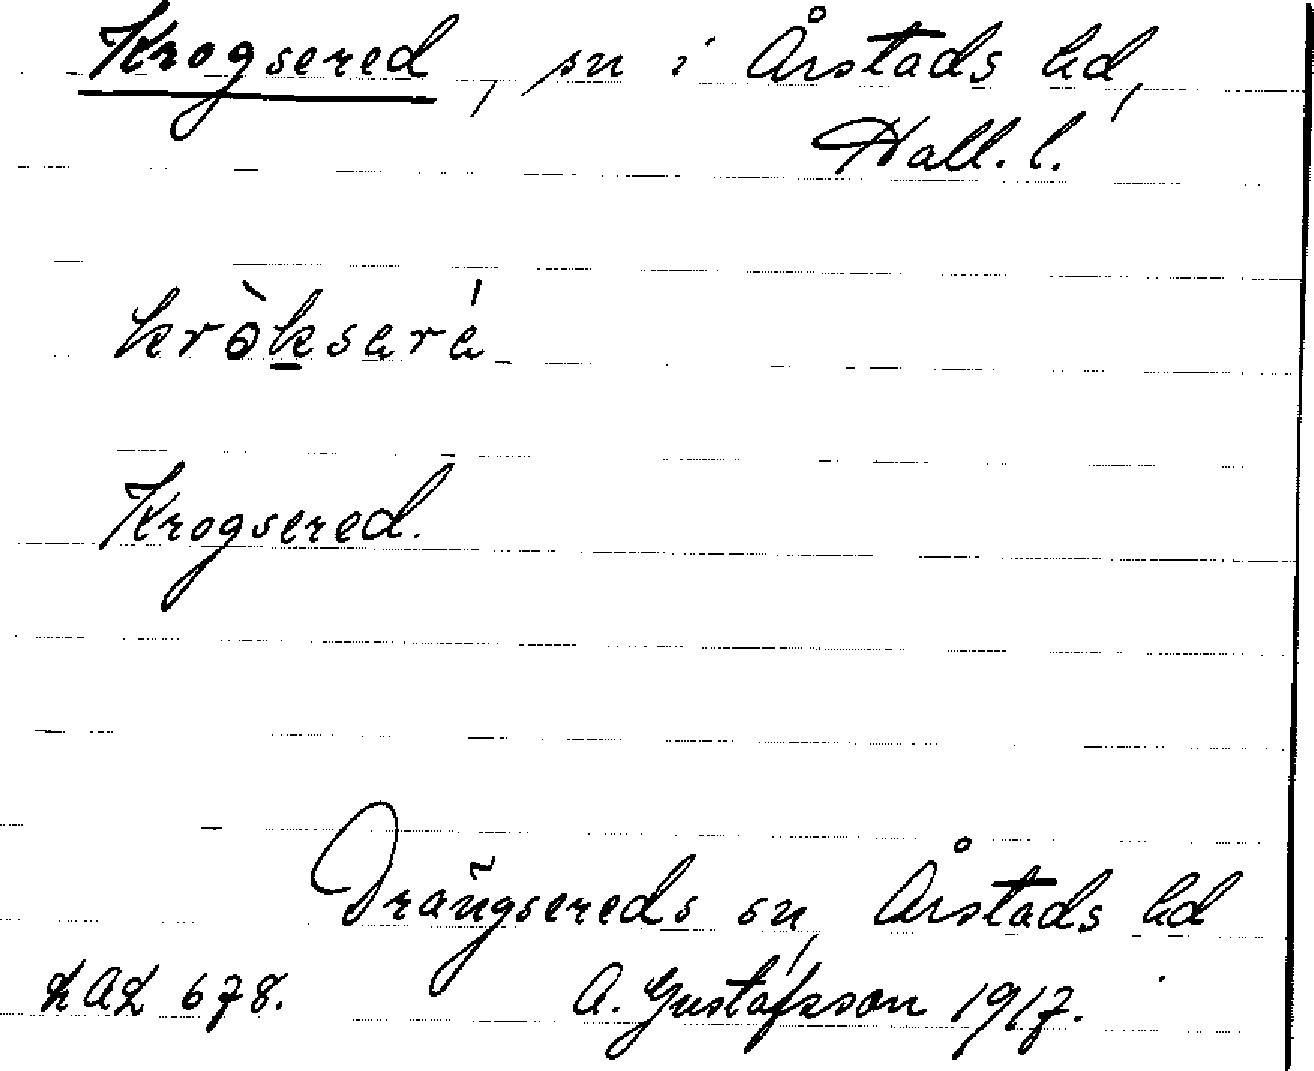 Krogsered, sn i Årstads hd,
Hall. l.
kròksará
Krogsered.
Drängsereds sn, Årstads hd
LAL 678. A. Gustafsson 1917.